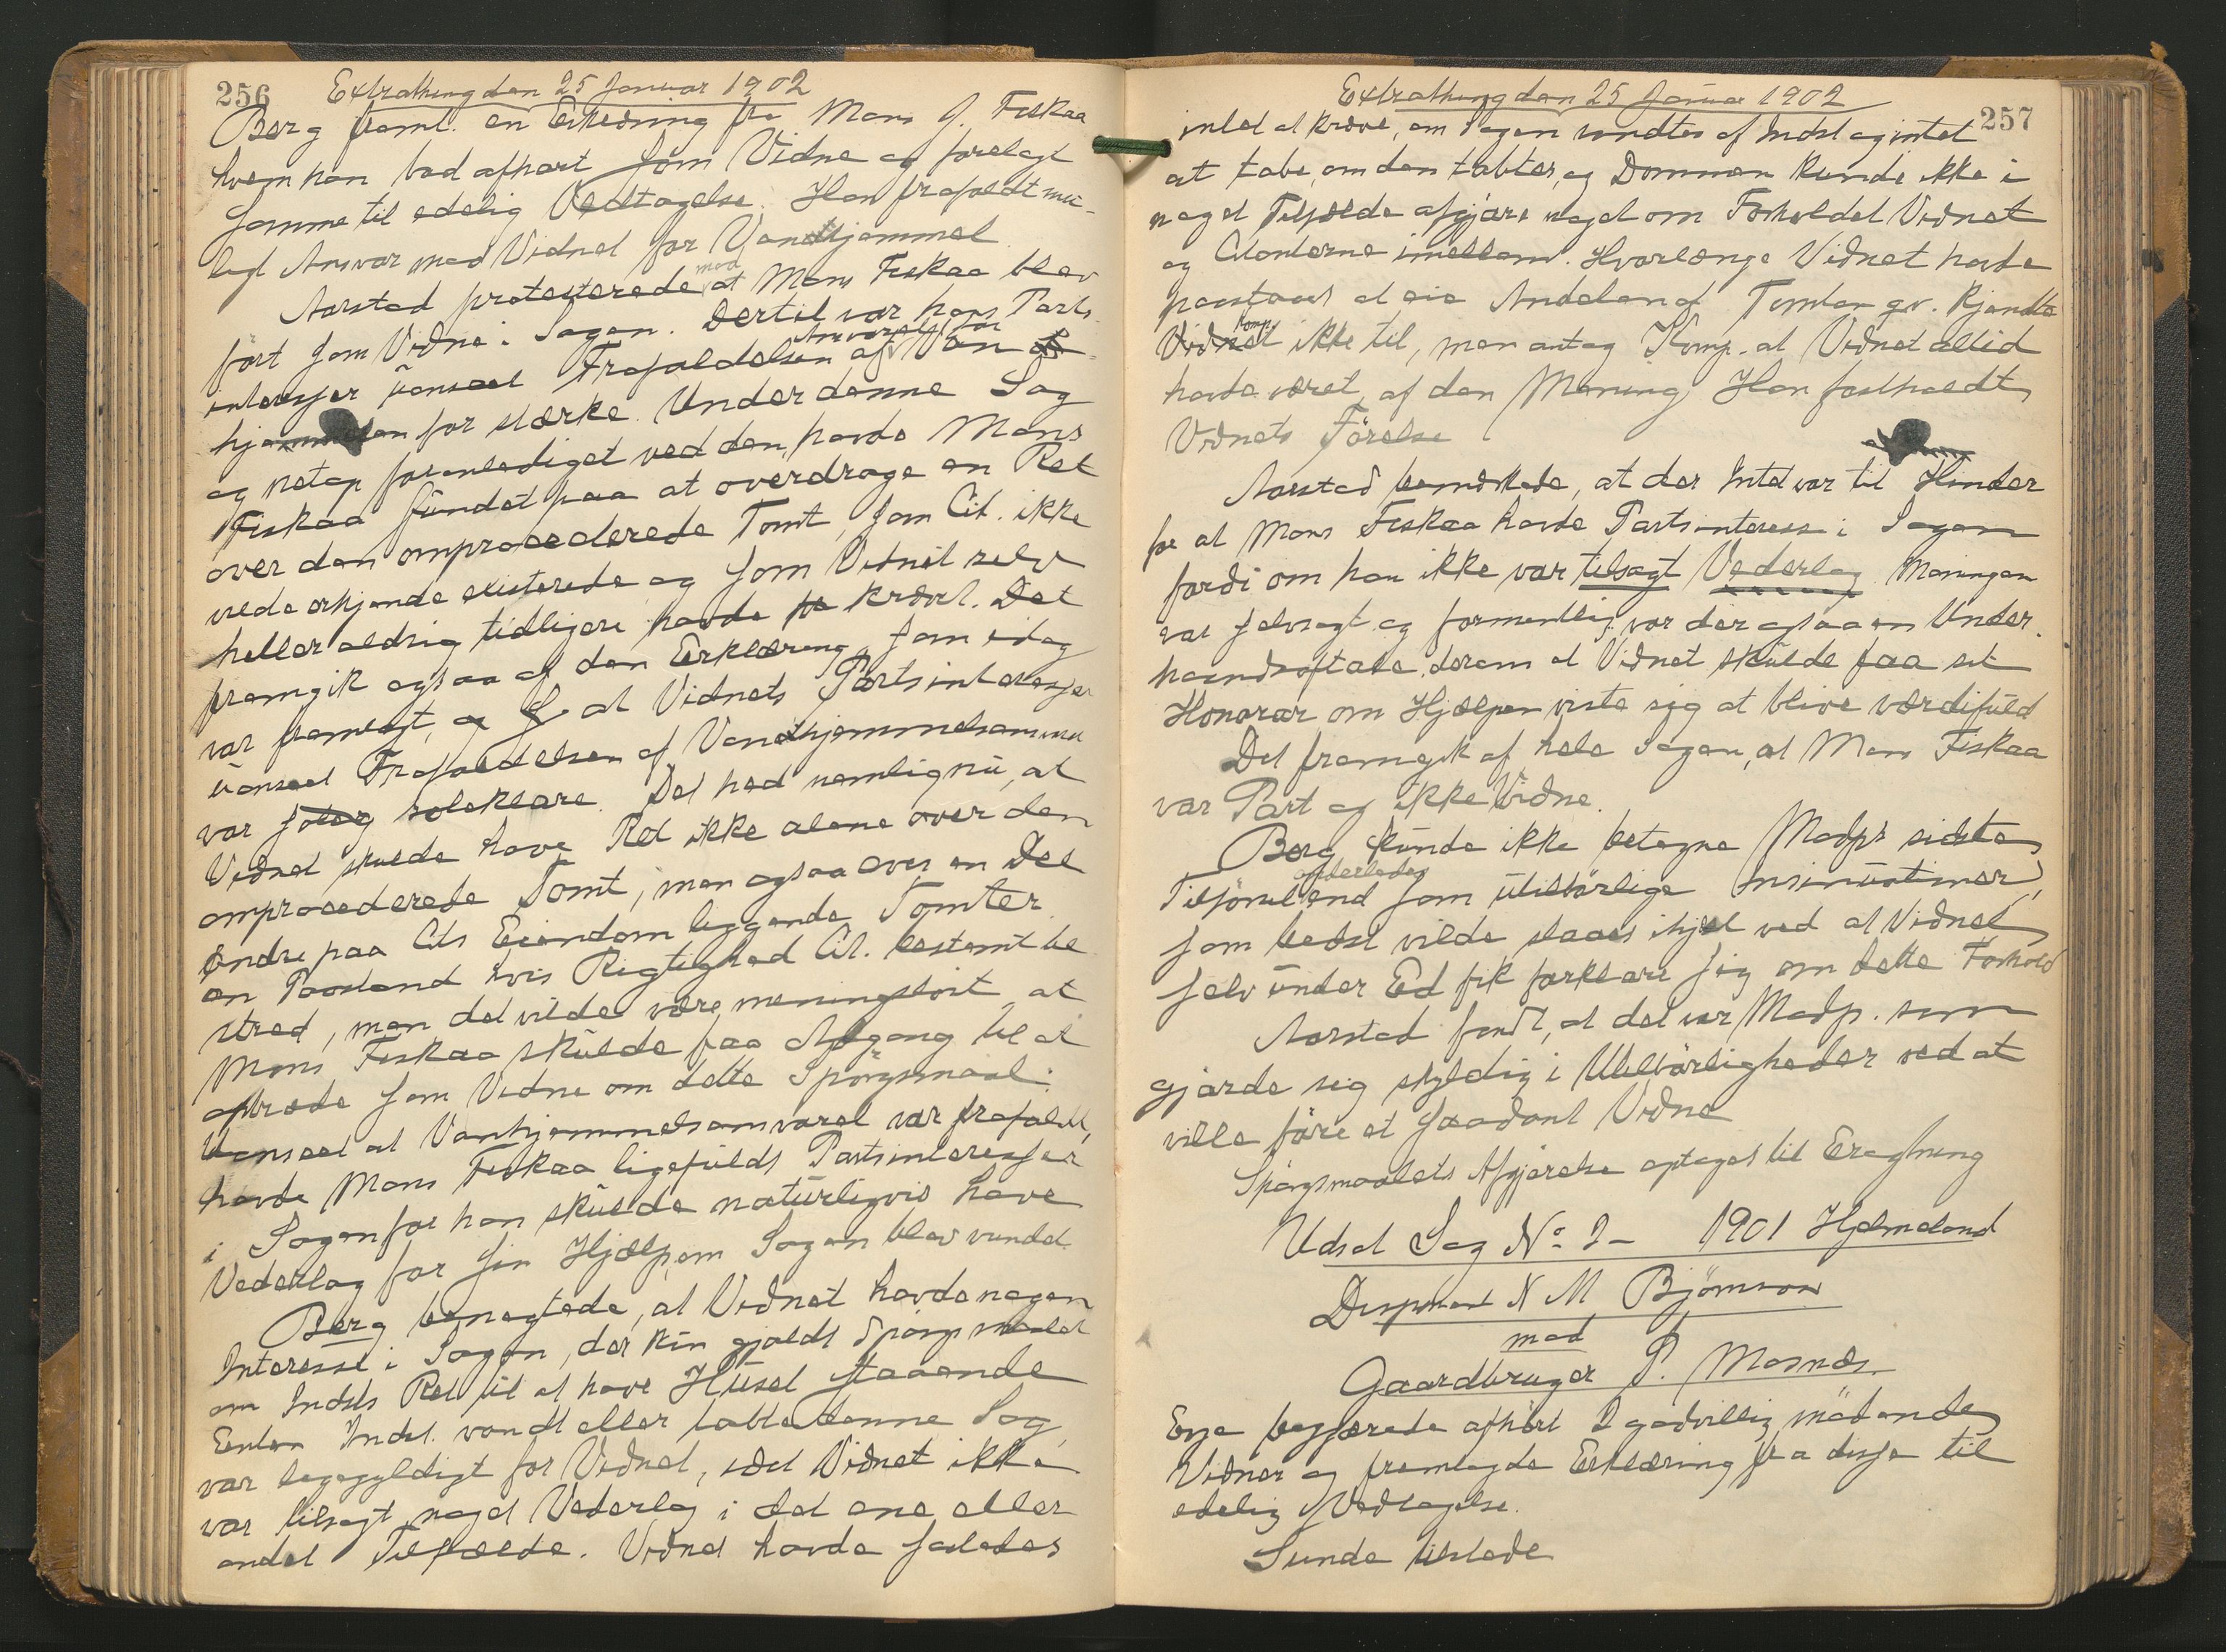 256
Extrathing den 25 Januar 1902
Berg freml. en Erklæring fra Mons J. Fiskaa
hvem han bad afhørt som Vidne og forelagt
samme til edelig Vedtagelse. Han frafaldt mu-
ligt Ansvar mod Vidnet for Vandhjemmel
Aarstad protesterede mod at Mons Fiskaa blev
ført som Vidne i Sagen. Dertil var hans Parts
interesser uanseet Frafaldelsen af Ansvaret for Van
hjemmelen for stærke. Under denne Sag
og netop foranlediget ved den havde Mons
Fiskaa fundet paa at overdrage en Ret
over den omprocederede Tomt, som Cit. ikke
vilde erkjende existerede og som Vidnet selv
heller aldrig tidligere havde krævet. Det
fremgik ogsaa af den Erklæring som idag
var fremlagt, at Vidnets Partsinteresser
uanseet Frafaldelsen af Vandhjemmelsansvar
var soleklare. Det hed nemlig nu, at
Vidnet skulde have Ret ikke alene over den
omprocederede Tomt, men ogsaa over en Del
andre paa Cits Eiendom liggende Tomter
en Paastand hvis Rigtighed Cit. bestemt be
stred, men det vilde være meningsløst, at
Mons Fiskaa skulde faa Adgang til at
optræde som Vidne om dette Spørgsmaal.
Uanseet at Vanhjemmelsansvaret var frafaldt,
havde Mons Fiskaa ligefuldt Partsinteresser
i Sagen for han skulde naturligvis have
Vederlag for sin Hjælp, om Sagen blev vundet.
Berg benegtede, at Vidnet havde nogen
Interesse i Sagen, der kun gjaldt Spørgsmaalet
om Indsts Ret til at have Huset staaende
Enten Indst. vandt eller tabte denne Sag,
var ligegyldigt for Vidnet, idet Vidnet ikke
var tilsagt noget Vederlag i det ene eller
andet Tilfælde. Vidnet havde saaledes
257
Extrathing den 25 Januar 1902
intet at kræve, om Sagen vandtes af Indst og intet
at tabe, om den tabtes, og Dommen kunde ikke i
noget Tilfælde afgjøre noget om Forholdet Vidnet
og Citanterne imellem. Hvorlænge Vidnet havde
paastaaet at eie Andelen af Tomten gv. kjendte
Komp. ikke til, men antog Komp. at Vidnet altid
havde været af den Mening. Han fastholdt
Vidnets Førelse
Aarstad bemærkede, at der Intet var til Hinder
for at Mons Fiskaa havde Partsinteresse i Sagen
fordi om han ikke var tilsagt Vederlag. Meningen
var selvsagt og formentlig var der ogsaa en Under
haandsaftale derom at Vidnet skulde faa sit
Honorar om Hjælpen viste sig at blive værdifuld
Det fremgik af hele Sagen, at Mons Fiskaa
var Part og ikke Vidne.
Berg kunde ikke betegne Modp's sidste
Tilførsel end som utilbørlige Insinuationer,
som bedst vilde slaaes ihjel ved at Vidnet
selv under Ed fik forklare sig om dette Forhold
Aarstad fandt, at det var Modp. som
gjorde sig skyldig i Utilbørligheder ved at
ville føre et saadant Vidne
Spørgsmaalets Afgjørelse optages til Eragtning
Udsat Sag No 2 - 1901 Hjelmeland
N M Bjørnson
mod
Gaardbruger P. Mosnæs.
begjærede afhørt 2 godvillig mødende
Vidner og fremlagde Erklæring fra disse til
edelig Vedtagelse.
Sunde tilstede